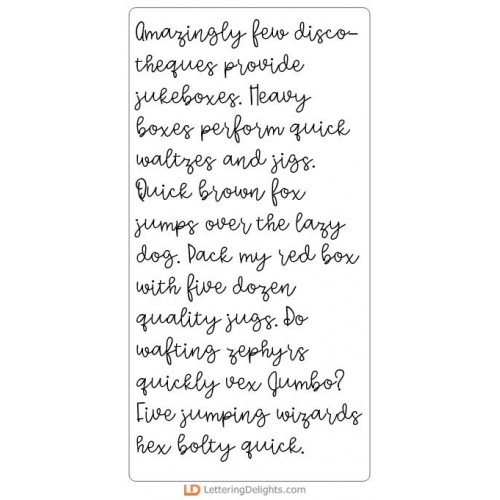 Amazingly few disco-
theques provide
jukeboxes. Heavy
boxes perform quick
waltzes and jigs.
Quick brown fox
jumps over the lazy
dog. Pack my red box
with five dozen
quality jugs. Do
wafting zephyrs
quickly vex Jumbo?
Five jumping wizards
hex bolty quick.
LD LetteringDelights.com